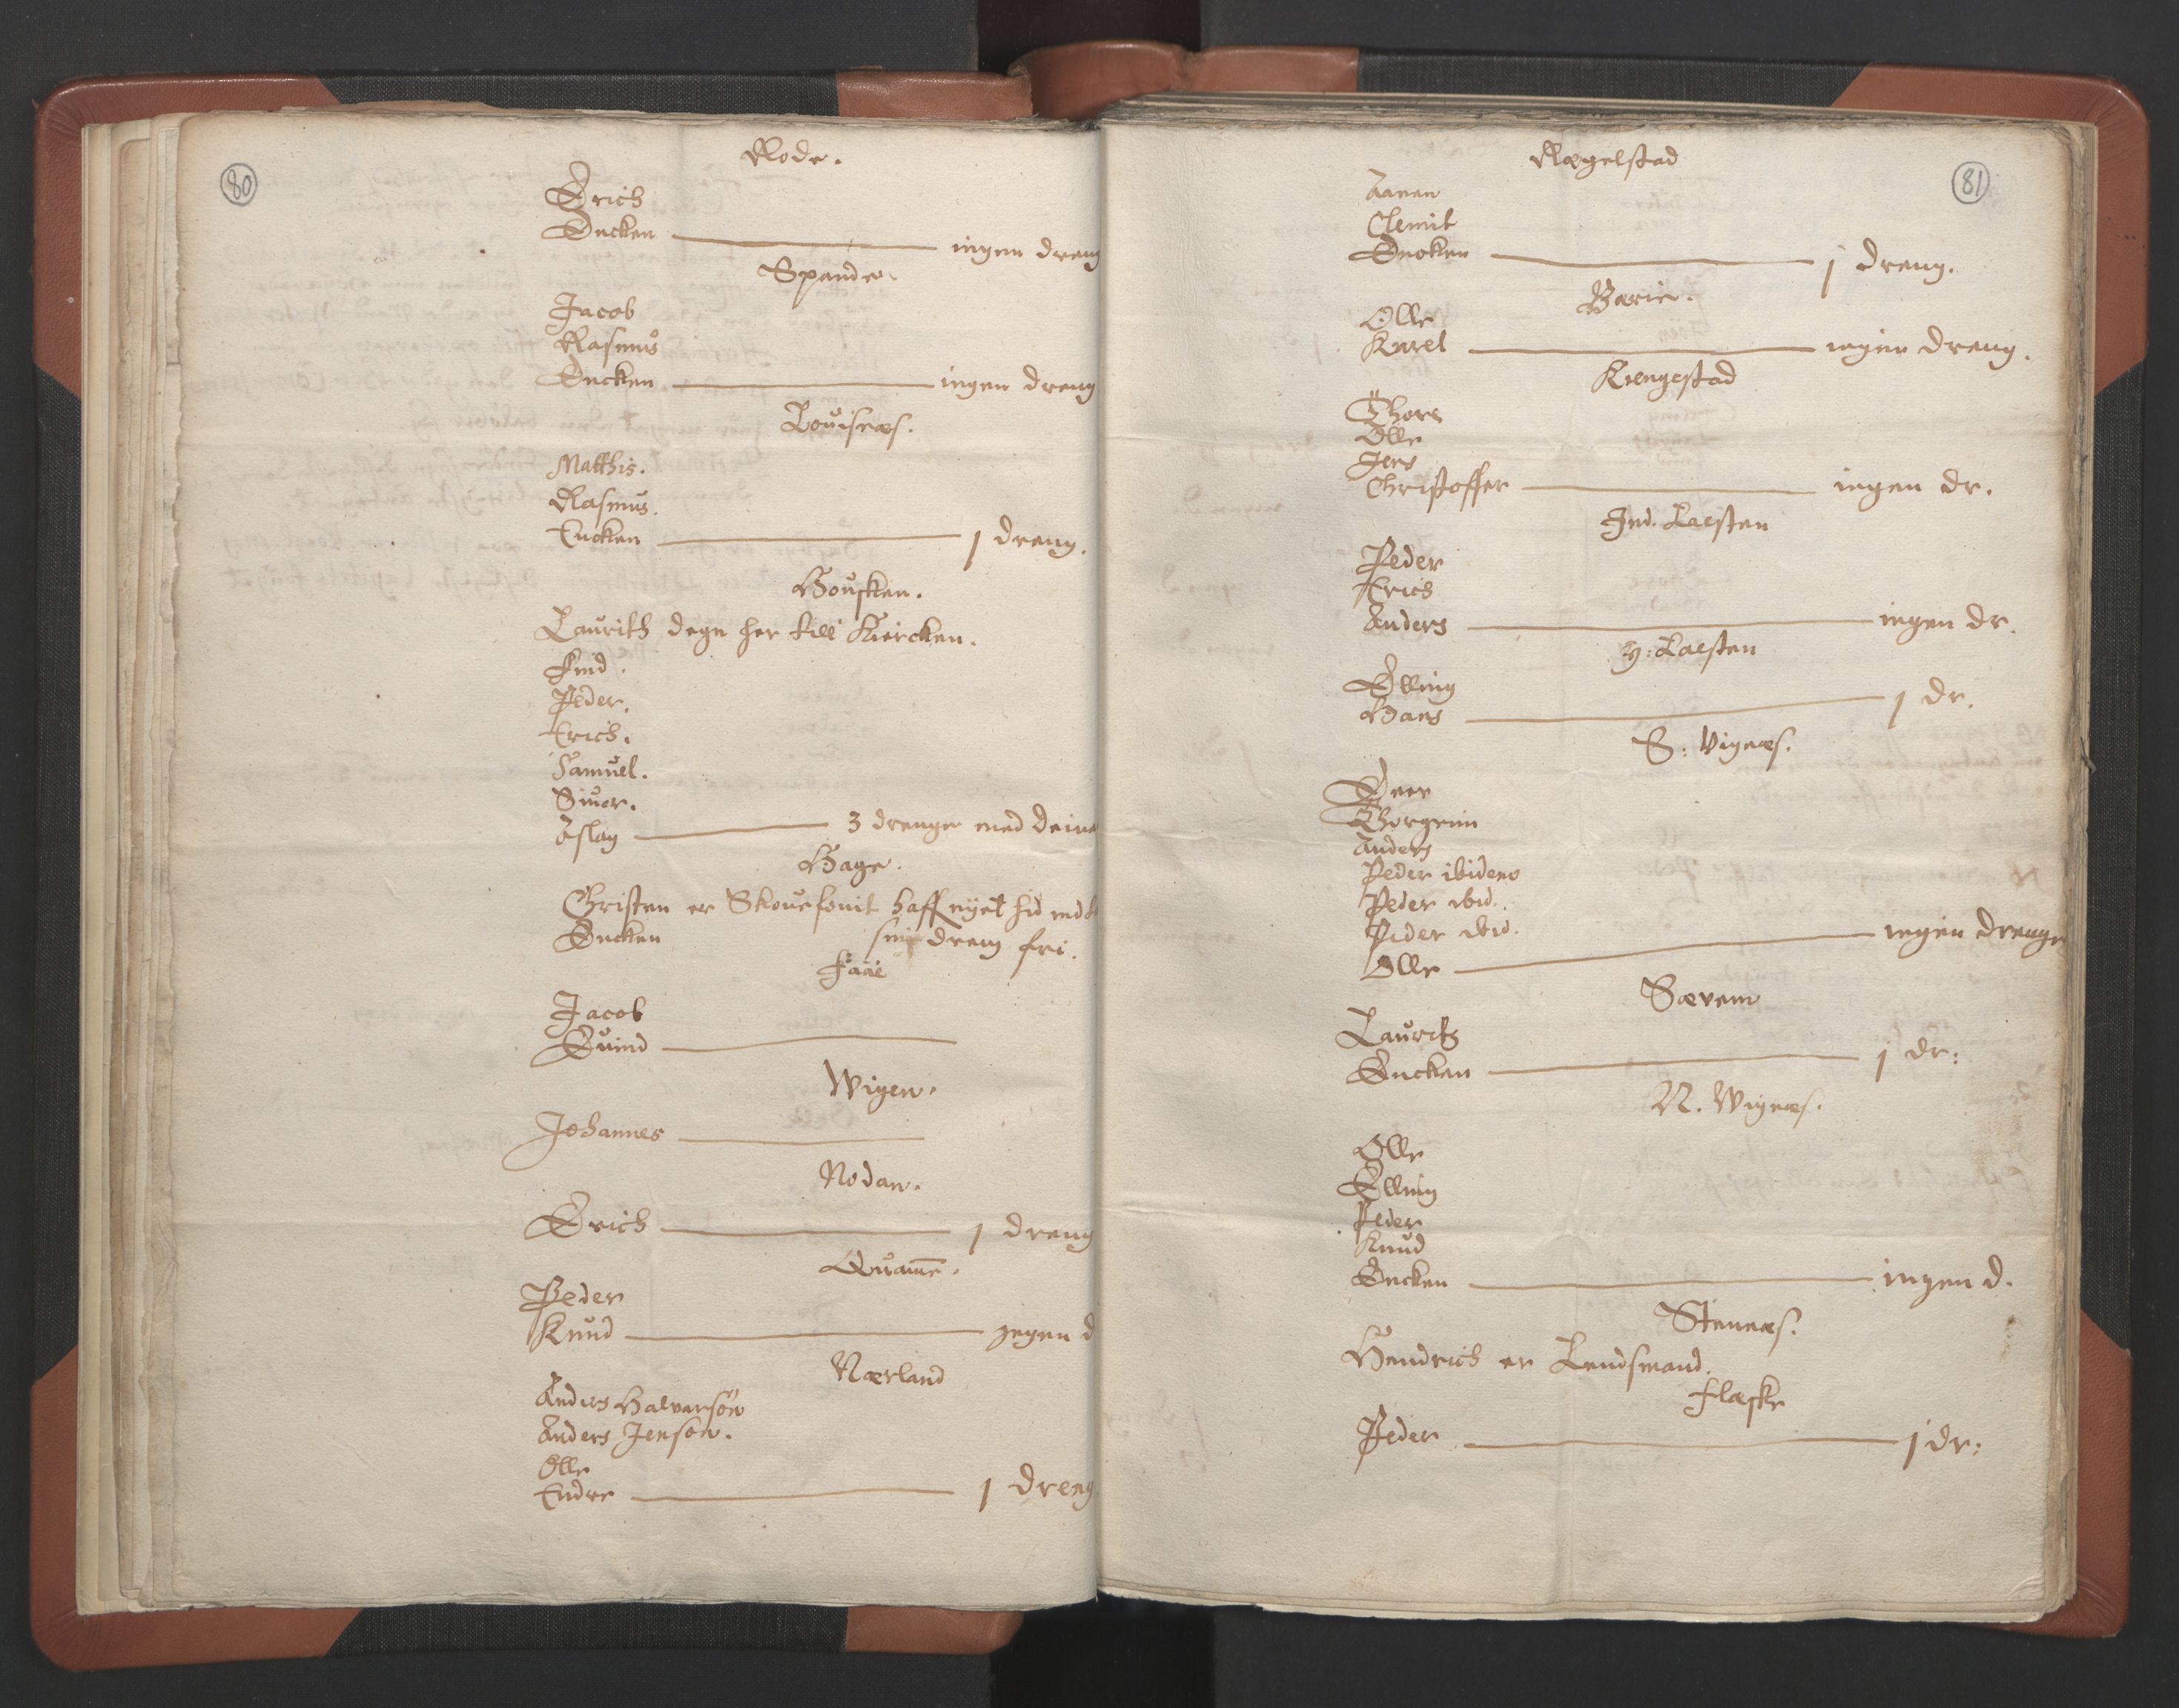 80
Rode.
Erich
Encken ingen dreng
Spande.
Jacob
Rasmus
Encken ingen dreng
Louisnæs.
Matthis.
Rasmus.
Encken 1 dreng.
Housken.
Lauritz degn her till Kiercken.
Find.
Peder.
Erich.
Samuel.
Siuer.
Aslag 3 drenge med
Hage.
Christen er haff nyet hid
Encken dreng fri.
Jacob
Euind
Wigen.
Johannes
Nodan.
Erich 1 dreng
Quame.
Peder
Knud jngen d
Nærland
Anders Halvarsøn
Anders Jensøn.
Olle
Endre 1 dreng
81
Rægelstad
Aanen
Clemit
Encken 1 dreng.
Olle
Karel ingen dreng.
Thore
Olle
Jens
Christoffer ingen dr.
Ind. Laesten
Peder
Erich
Anders ingen dr.
Y: Laesten
Elling
Hans 1 dr.
S: Vignæs.
Thorgrim
Anders
Peder ibidem
Peder ibid.
Peder ibid.
Olle ingen drenge
Sævem
Lauritz
Encken 1 dr:
N. Wignæs.
Olle
Elling
Peder
Knud
Encken ingen d.
Stenæs.
Hendrich er Lendsmand.
Flaske
Peder 1 dr: